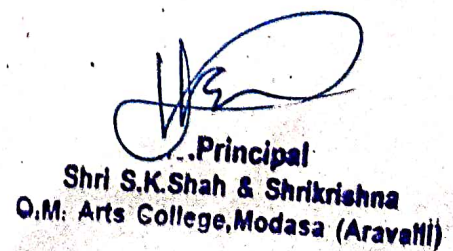 Principal
Shri S.K.Shah & Shrikrishna
O.M. Arts College,Modasa (Aravalli)